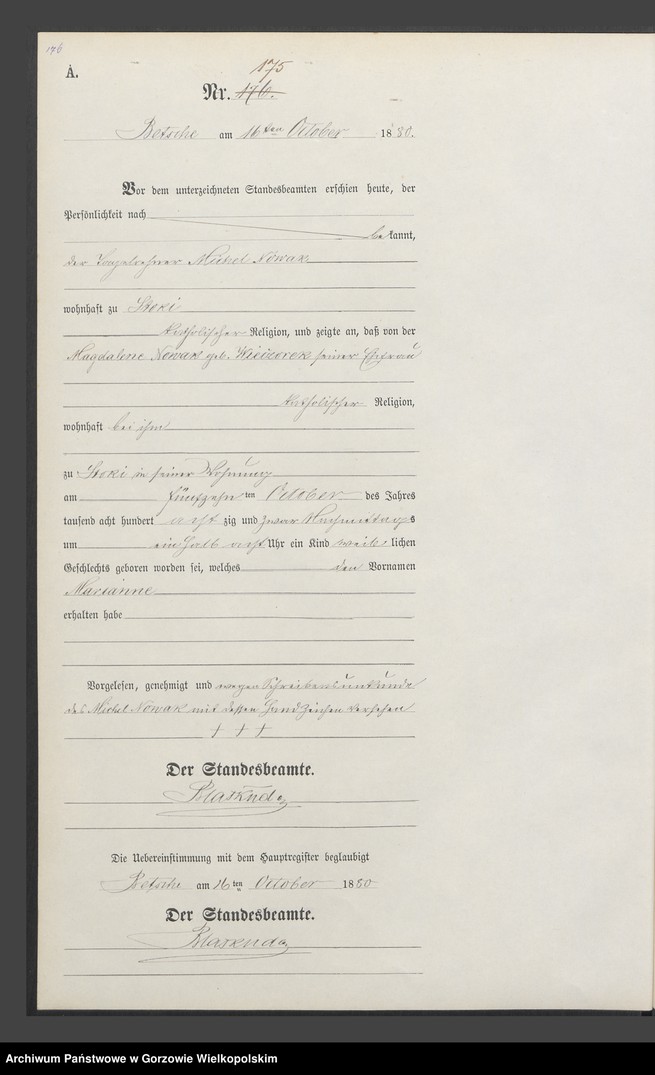 176
A.
175
Nr. 176.
Betsche am 16ten October 1880.
Vor dem unterzeichneten Standesbeamten erschien heute, der
Persönlichkeit nach
bekannt,
der Michel Nowak
wohnhaft zu Stoki
katholischer Religion, und zeigte an, daß von der
Magdalene Nowak geb. Wieczorek seiner Ehefrau
katholischer Religion,
wohnhaft bei ihm
zu Stoki in seiner Wohnung
am fünfzehnten October des Jahres
tausend acht hundert achtzig und zwar Nachmittags
um ein halb acht Uhr ein Kind weiblichen
Geschlechts geboren worden sei, welches den Vornamen
Marianne
erhalten habe
Vorgelesen, genehmigt und wegen Schreibensunkunde
des Michel Nowak mit dessen Handzeichen versehen
† † †
Der Standesbeamte.
Die Uebereinstimmung mit dem Hauptregister beglaubigt
Betsche am 16ten October 1880
Der Standesbeamte.
Archiwum Państwowe w Gorzowie Wielkopolskim